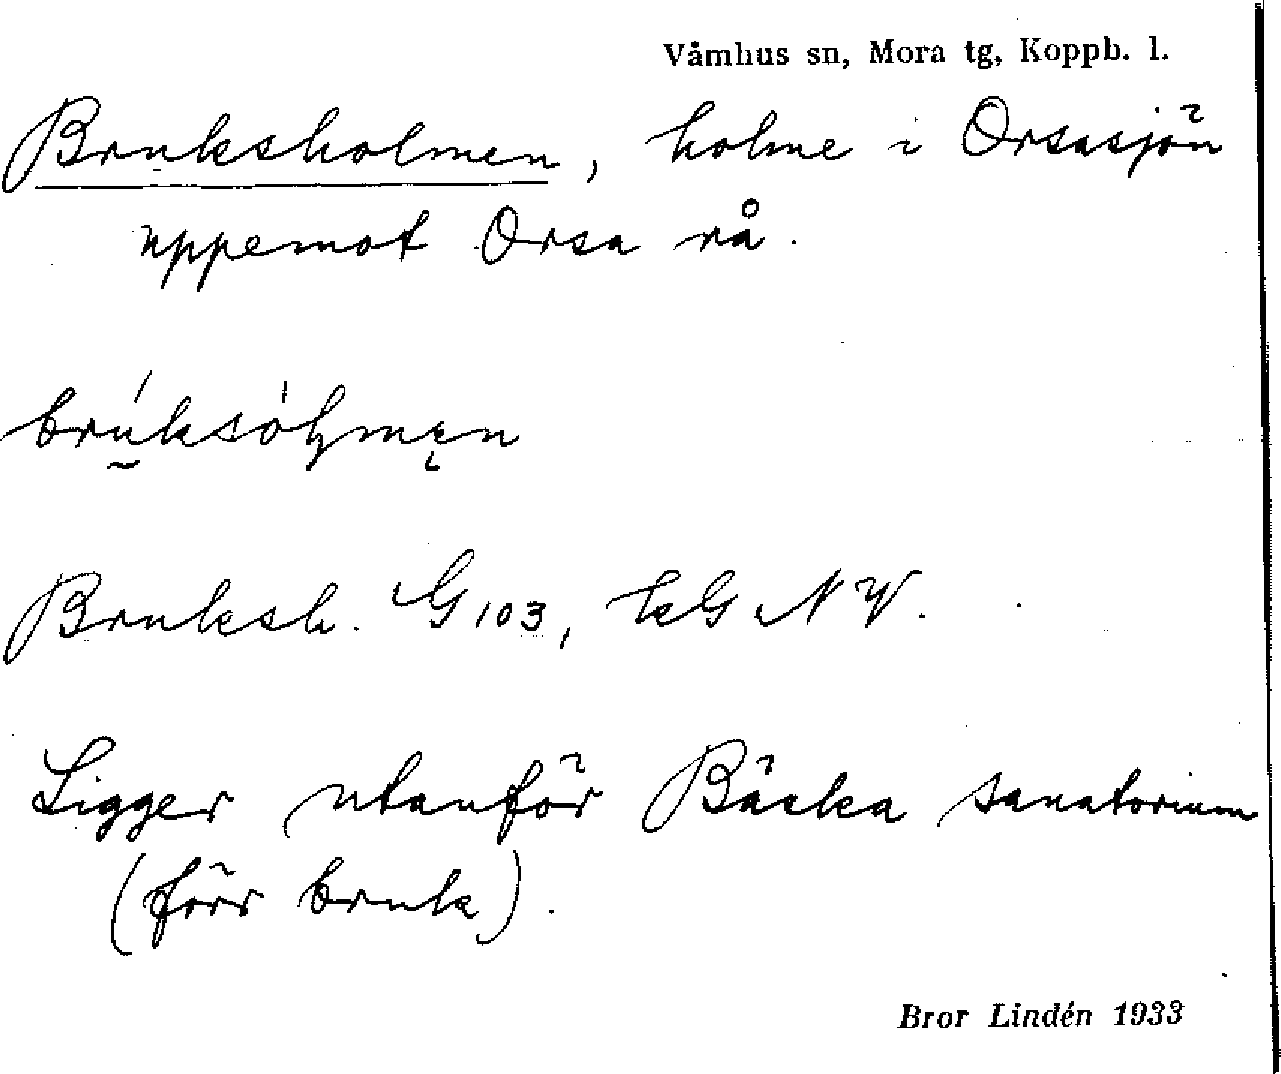 Våmhus sn, Mora tg, Koppb. l.
Bruksholmen, holme i Orsasjön
uppemot Orsa rå.
Bruksh. G 103, kG NV.
Ligger utanför Bäcka sanatorium
(förr bruk).
Bror Lindén 1933